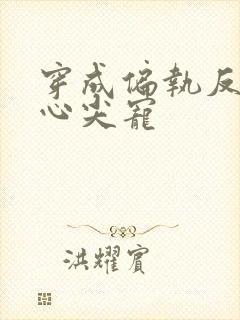 穿成偏執反
心尖寵
洪耀賓